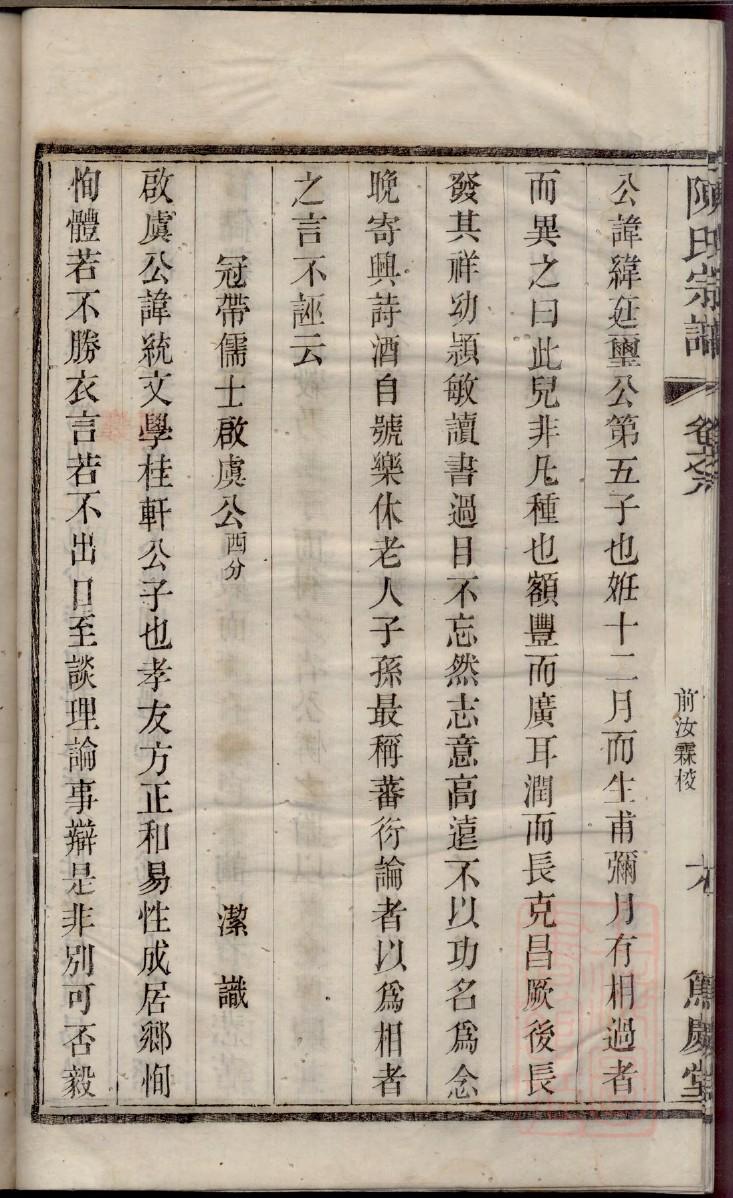 陳氏宗譜
卷之六
前汝霖校
篤慶堂
公諱緯廷璽公第五子也姙十二月而生甫彌月有相過者
而異之曰此兒非凡種也額豐而廣耳潤而長克昌厥後長
發其祥幼穎敏讀書過目不忘然志意高遠不以功名爲念
晚寄興詩酒自號樂休老人子孫最稱蕃衍論者以爲相者
之言不誣云
冠帶儒士啟虞公西分 潔識
啟虞公諱統文學桂軒公子也孝友方正和易性成居鄉恂
恂體若不勝衣言若不出口至談理論事辯是非別可否毅